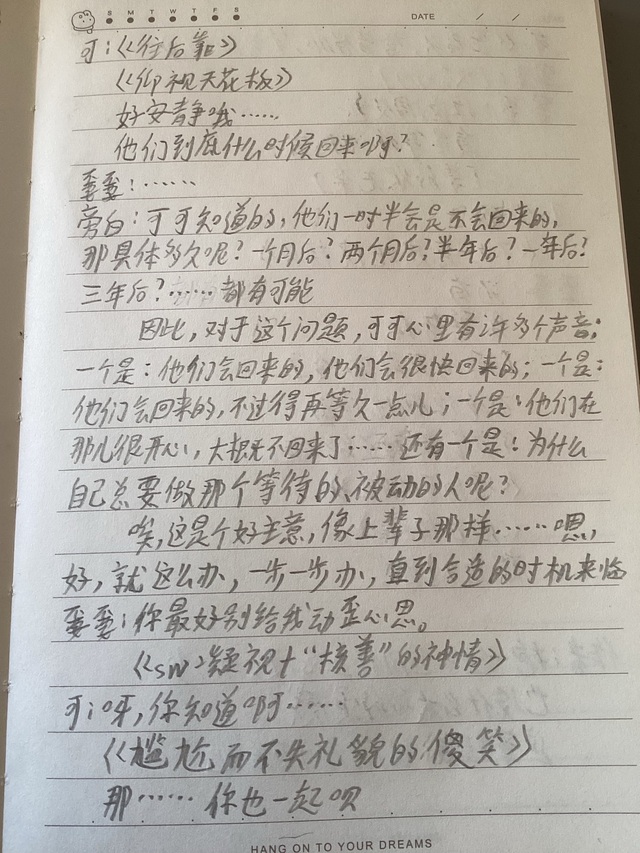 S M T W T F S
DATE / /
可：《往后靠》
《仰视天花板》
好安静哦……
他们到底什么时候回来啊？
委委：……
旁白：可可知道的，他们一时半会是不会回来的，
那具体多久呢？一个月后？两个月后？半年后？一年后？
三年后？……都有可能
因此，对于这个问题，可可心里有许多个声音：
一个是：他们会回来的，他们会很快回来的；一个是：
他们会回来的，不过得再等久一点儿；一个是：他们在
那儿很开心，大概不回来了……还有一个是：为什么
自己总要做那个等待的、被动的人呢？
唉，这是个好主意，像上辈子那样……嗯，
好，就这么办，一步一步办，直到合适的时机来临
委委：你最好别给我动歪心思。
《sw凝视+“核善”的神情》
可：呀，你知道啊……
《尴尬而不失礼貌的傻笑》
那……你也一起呗
HANG ON TO YOUR DREAMS